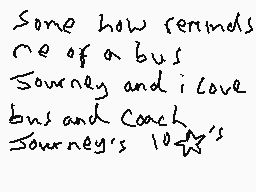 Some how reminds
me of a bus
Journey and i love
bus and Coach
Journey's 10☆'s